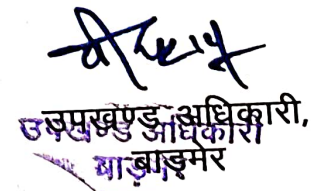 उपखण्ड अधिकारी,
उपखण्ड अधिकारी
बाड़मेर